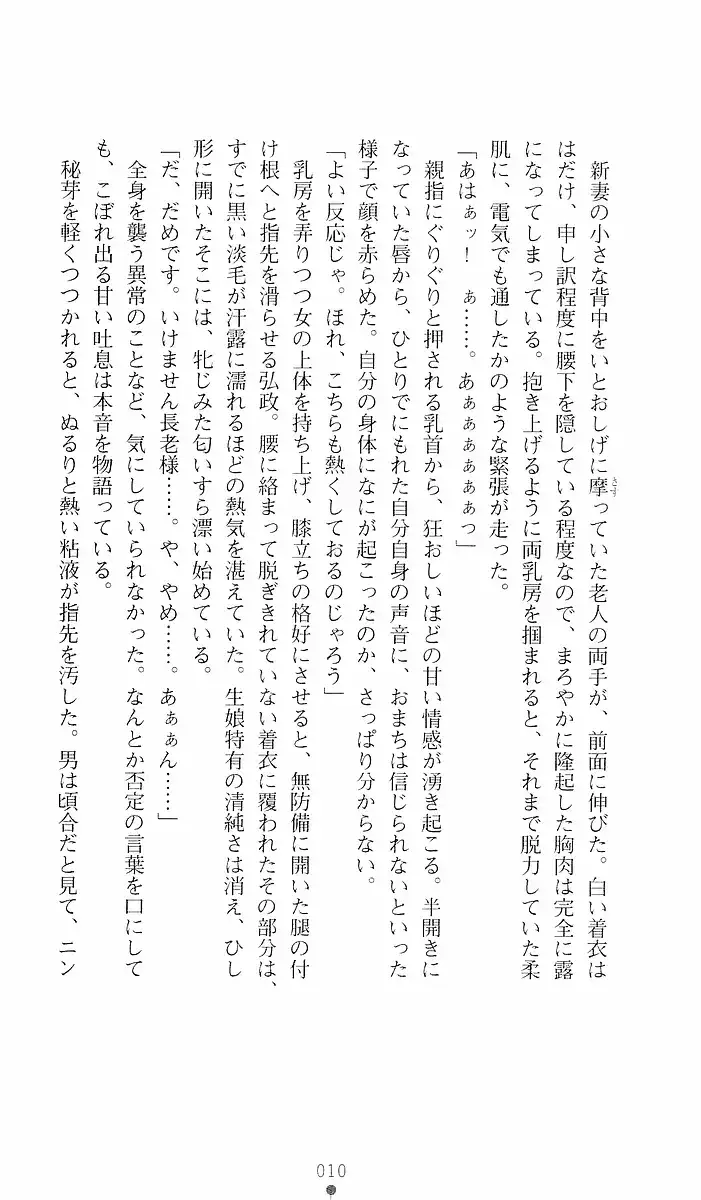 新妻の小さな背中をいとおしげに摩っていた老人の両手が、前面に伸びた。白い着衣は
さす
はだけ、申し訳程度に腰下を隠している程度なので、まろやかに隆起した胸肉は完全に露
になってしまっている。抱き上げるように両乳房を掴まれると、それまで脱力していた柔
肌に、電気でも通したかのような緊張が走った。
「あはぁッ！　ぁ……。あぁぁぁぁぁっ」
親指にぐりぐりと押される乳首から、狂おしいほどの甘い情感が湧き起こる。半開きに
なっていた唇から、ひとりでにもれた自分自身の声音に、おまちは信じられないといった
様子で顔を赤らめた。自分の身体になにが起こったのか、さっぱり分からない。
「よい反応じゃ。ほれ、こちらも熱くしておるのじゃろう」
乳房を弄りつつ女の上体を持ち上げ、膝立ちの格好にさせると、無防備に開いた腿の付
け根へと指先を滑らせる弘政。腰に絡まって脱ぎきれていない着衣に覆われたその部分は、
すでに黒い淡毛が汗露に濡れるほどの熱気を湛えていた。生娘特有の清純さは消え、ひし
形に開いたそこには、牝じみた匂いすら漂い始めている。
「だ、だめです。いけません長老様……。や、やめ……。あぁぁん……」
全身を襲う異常のことなど、気にしていられなかった。なんとか否定の言葉を口にして
も、こぼれ出る甘い吐息は本音を物語っている。
秘芽を軽くつつかれると、ぬるりと熱い粘液が指先を汚した。男は頃合だと見て、ニン
010